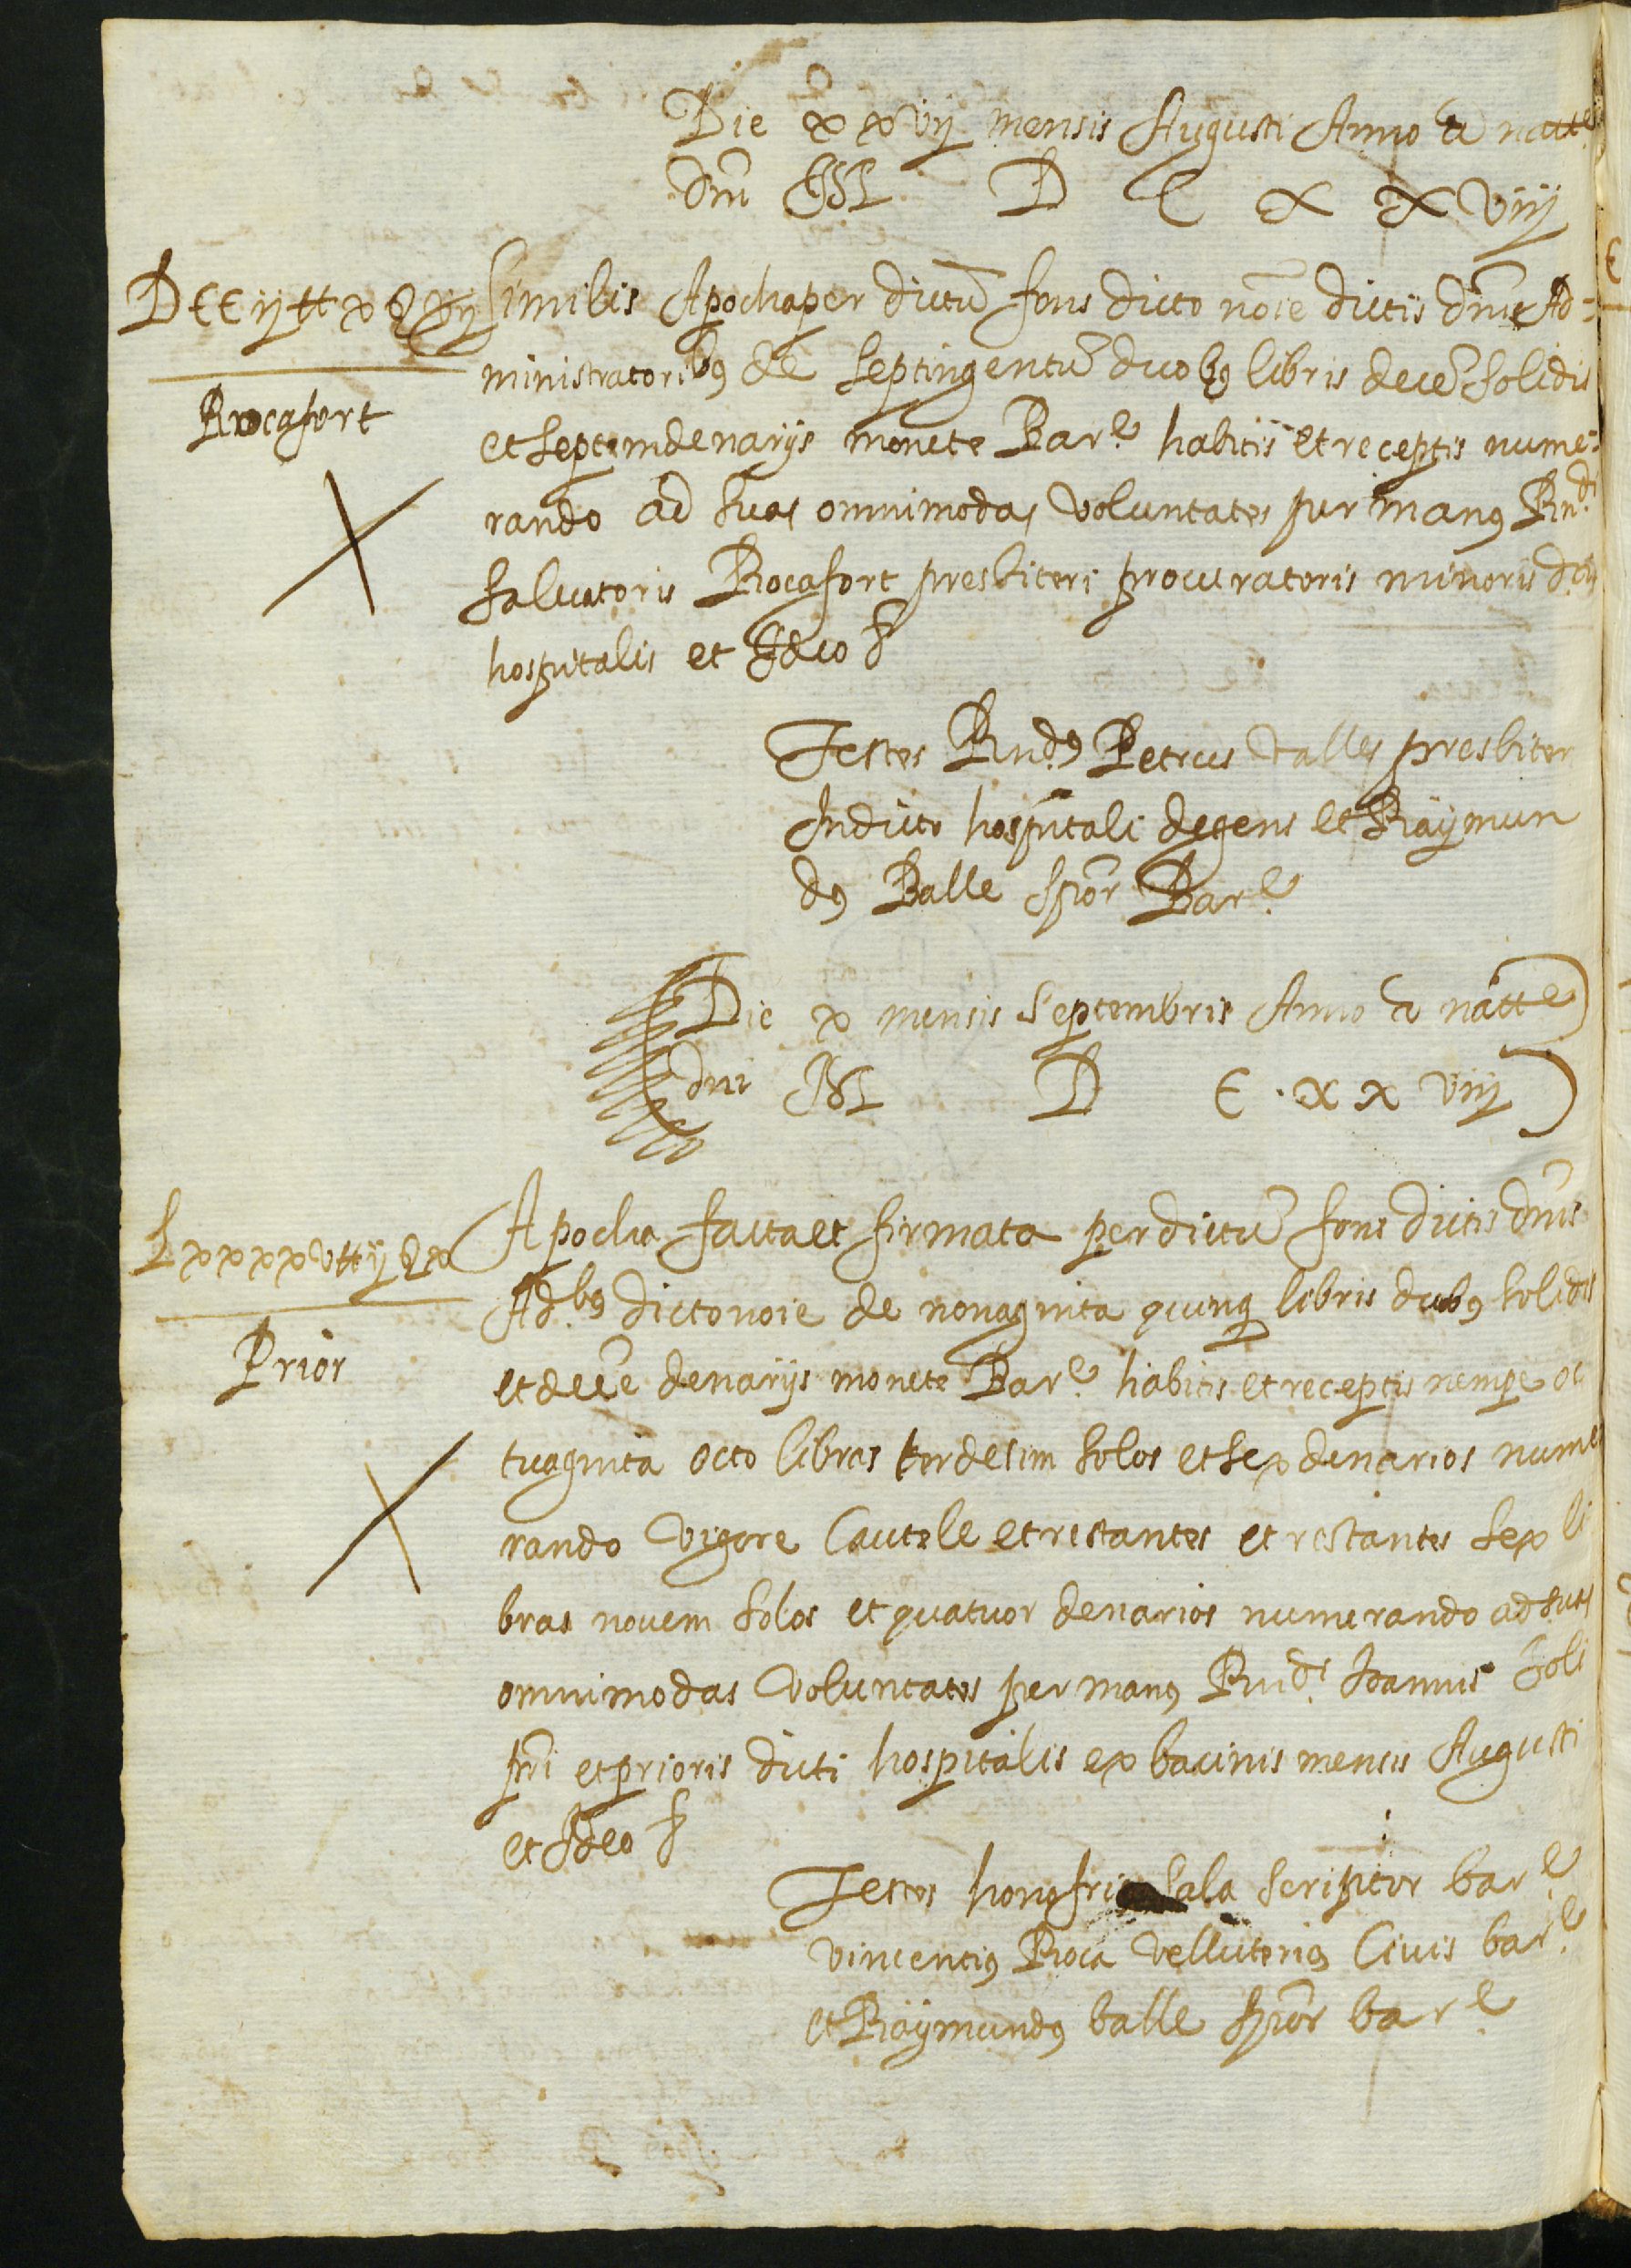 Die xxvij mensis Augusti Anno a natte
Dni M D C x x viij
DCCij ℔ x ß vij
Similis Apocha per dictū fons dicto noīe dictis dnis Ad=
ministratoribꝰ de septingentū duobꝰ libris decē solidis
Rocafort
et septem denarijs monete Barᵉ. habitis et receptis nume=
rando ad suas omnimodas voluntates per manꝰ Rndⁱ.
saluatoris Rocafort presbiteri procuratoris minoris
hospitalis et Ideo &
Testes Rndꝰ Petrus Valles presbiter
In dicto hospitali degens et Raÿmun
dꝰ Balle spōr Barᵉ.
Die x mensis Septembris Anno a natte
dni M D C . x x viij
Lxxxxv ℔ ij ß x
Apocha facta et firmata per dictū fons dictis dnis
Ad.bꝰ dicto noie de nonaginta quinqꝫ libris duobꝰ solidis
Prior
et decē denarijs monete Barᵉ. habitis et receptis nempe oc
tuaginta octo libras terdesim solos et sex denarios nume
rando vigore Cautele et restantes et restantes sex li
bras nouem solos et quatuor denarios numerando ad suas
omnimodas voluntates per manꝰ Rndⁱ. Joannis Soli
pri et prioris dicti hospitalis ex bacinis mensis Augusti
et Ideo &
Testes honofriꝰ Sala scriptor barᵉ.
vincentiꝰ Roca velluteriꝰ Ciuis barᵉ.
et Raÿmundꝰ balle spōr barᵉ.